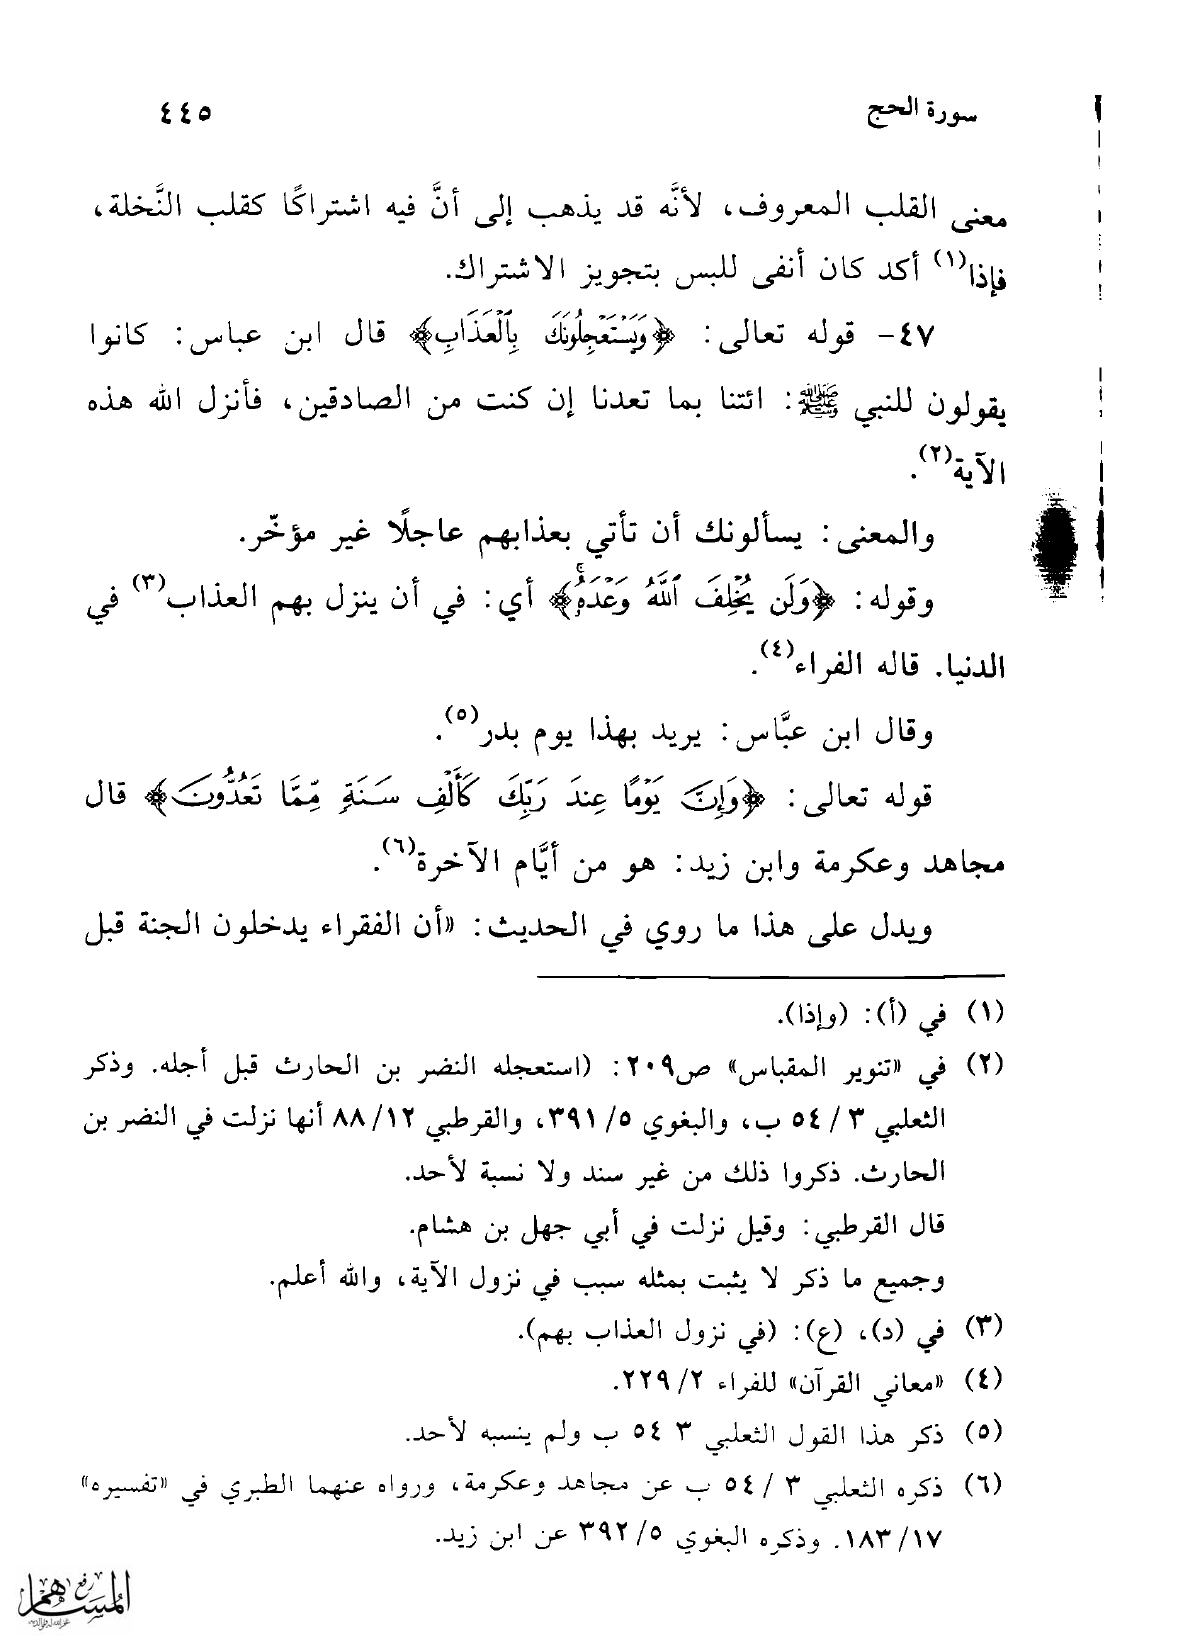 سورة الحج
٤٤٥
معنى القلب المعروف، لأنَّه قد يذهب إلى أنَّ فيه اشتراكًا كقلب النَّخلة،
فإذا(١) أكد كان أنفى للبس بتجويز الاشتراك.
٤٧- قوله تعالى: ﴿وَيَسْتَعْجِلُونَكَ بِالْعَذَابِ﴾ قال ابن عباس: كانوا
يقولون للنبي ﷺ: ائتنا بما تعدنا إن كنت من الصادقين، فأنزل الله هذه
الآية(٢).
والمعنى: يسألونك أن تأتي بعذابهم عاجلًا غير مؤخّر.
وقوله: ﴿وَلَن يُخْلِفَ ٱللَّهُ وَعْدَهُۥ﴾ أي: في أن ينزل بهم العذاب(٣) في
الدنيا. قاله الفراء(٤).
وقال ابن عبَّاس: يريد بهذا يوم بدر(٥).
قوله تعالى: ﴿وَإِنَّ يَوْمًا عِندَ رَبِّكَ كَأَلْفِ سَنَةٍ مِّمَّا تَعُدُّونَ﴾ قال
مجاهد وعكرمة وابن زيد: هو من أيَّام الآخرة(٦).
ويدل على هذا ما روي في الحديث: «أن الفقراء يدخلون الجنة قبل
(١) في (أ): (وإذا).
(٢) في «تنوير المقباس» ص٢٠٩: (استعجله النضر بن الحارث قبل أجله. وذكر
الثعلبي ٣/ ٥٤ ب، والبغوي ٥/ ٣٩١، والقرطبي ١٢/ ٨٨ أنها نزلت في النضر بن
الحارث. ذكروا ذلك من غير سند ولا نسبة لأحد.
قال القرطبي: وقيل نزلت في أبي جهل بن هشام.
وجميع ما ذكر لا يثبت بمثله سبب في نزول الآية، والله أعلم.
(٣) في (د)، (ع): (في نزول العذاب بهم).
(٤) «معاني القرآن» للفراء ٢/ ٢٢٩.
(٥) ذكر هذا القول الثعلبي ٣ ٥٤ ب ولم ينسبه لأحد.
(٦) ذكره الثعلبي ٣ / ٥٤ ب عن مجاهد وعكرمة، ورواه عنهما الطبري في «تفسيره»
١٧/ ١٨٣. وذكره البغوي ٥/ ٣٩٢ عن ابن زيد.